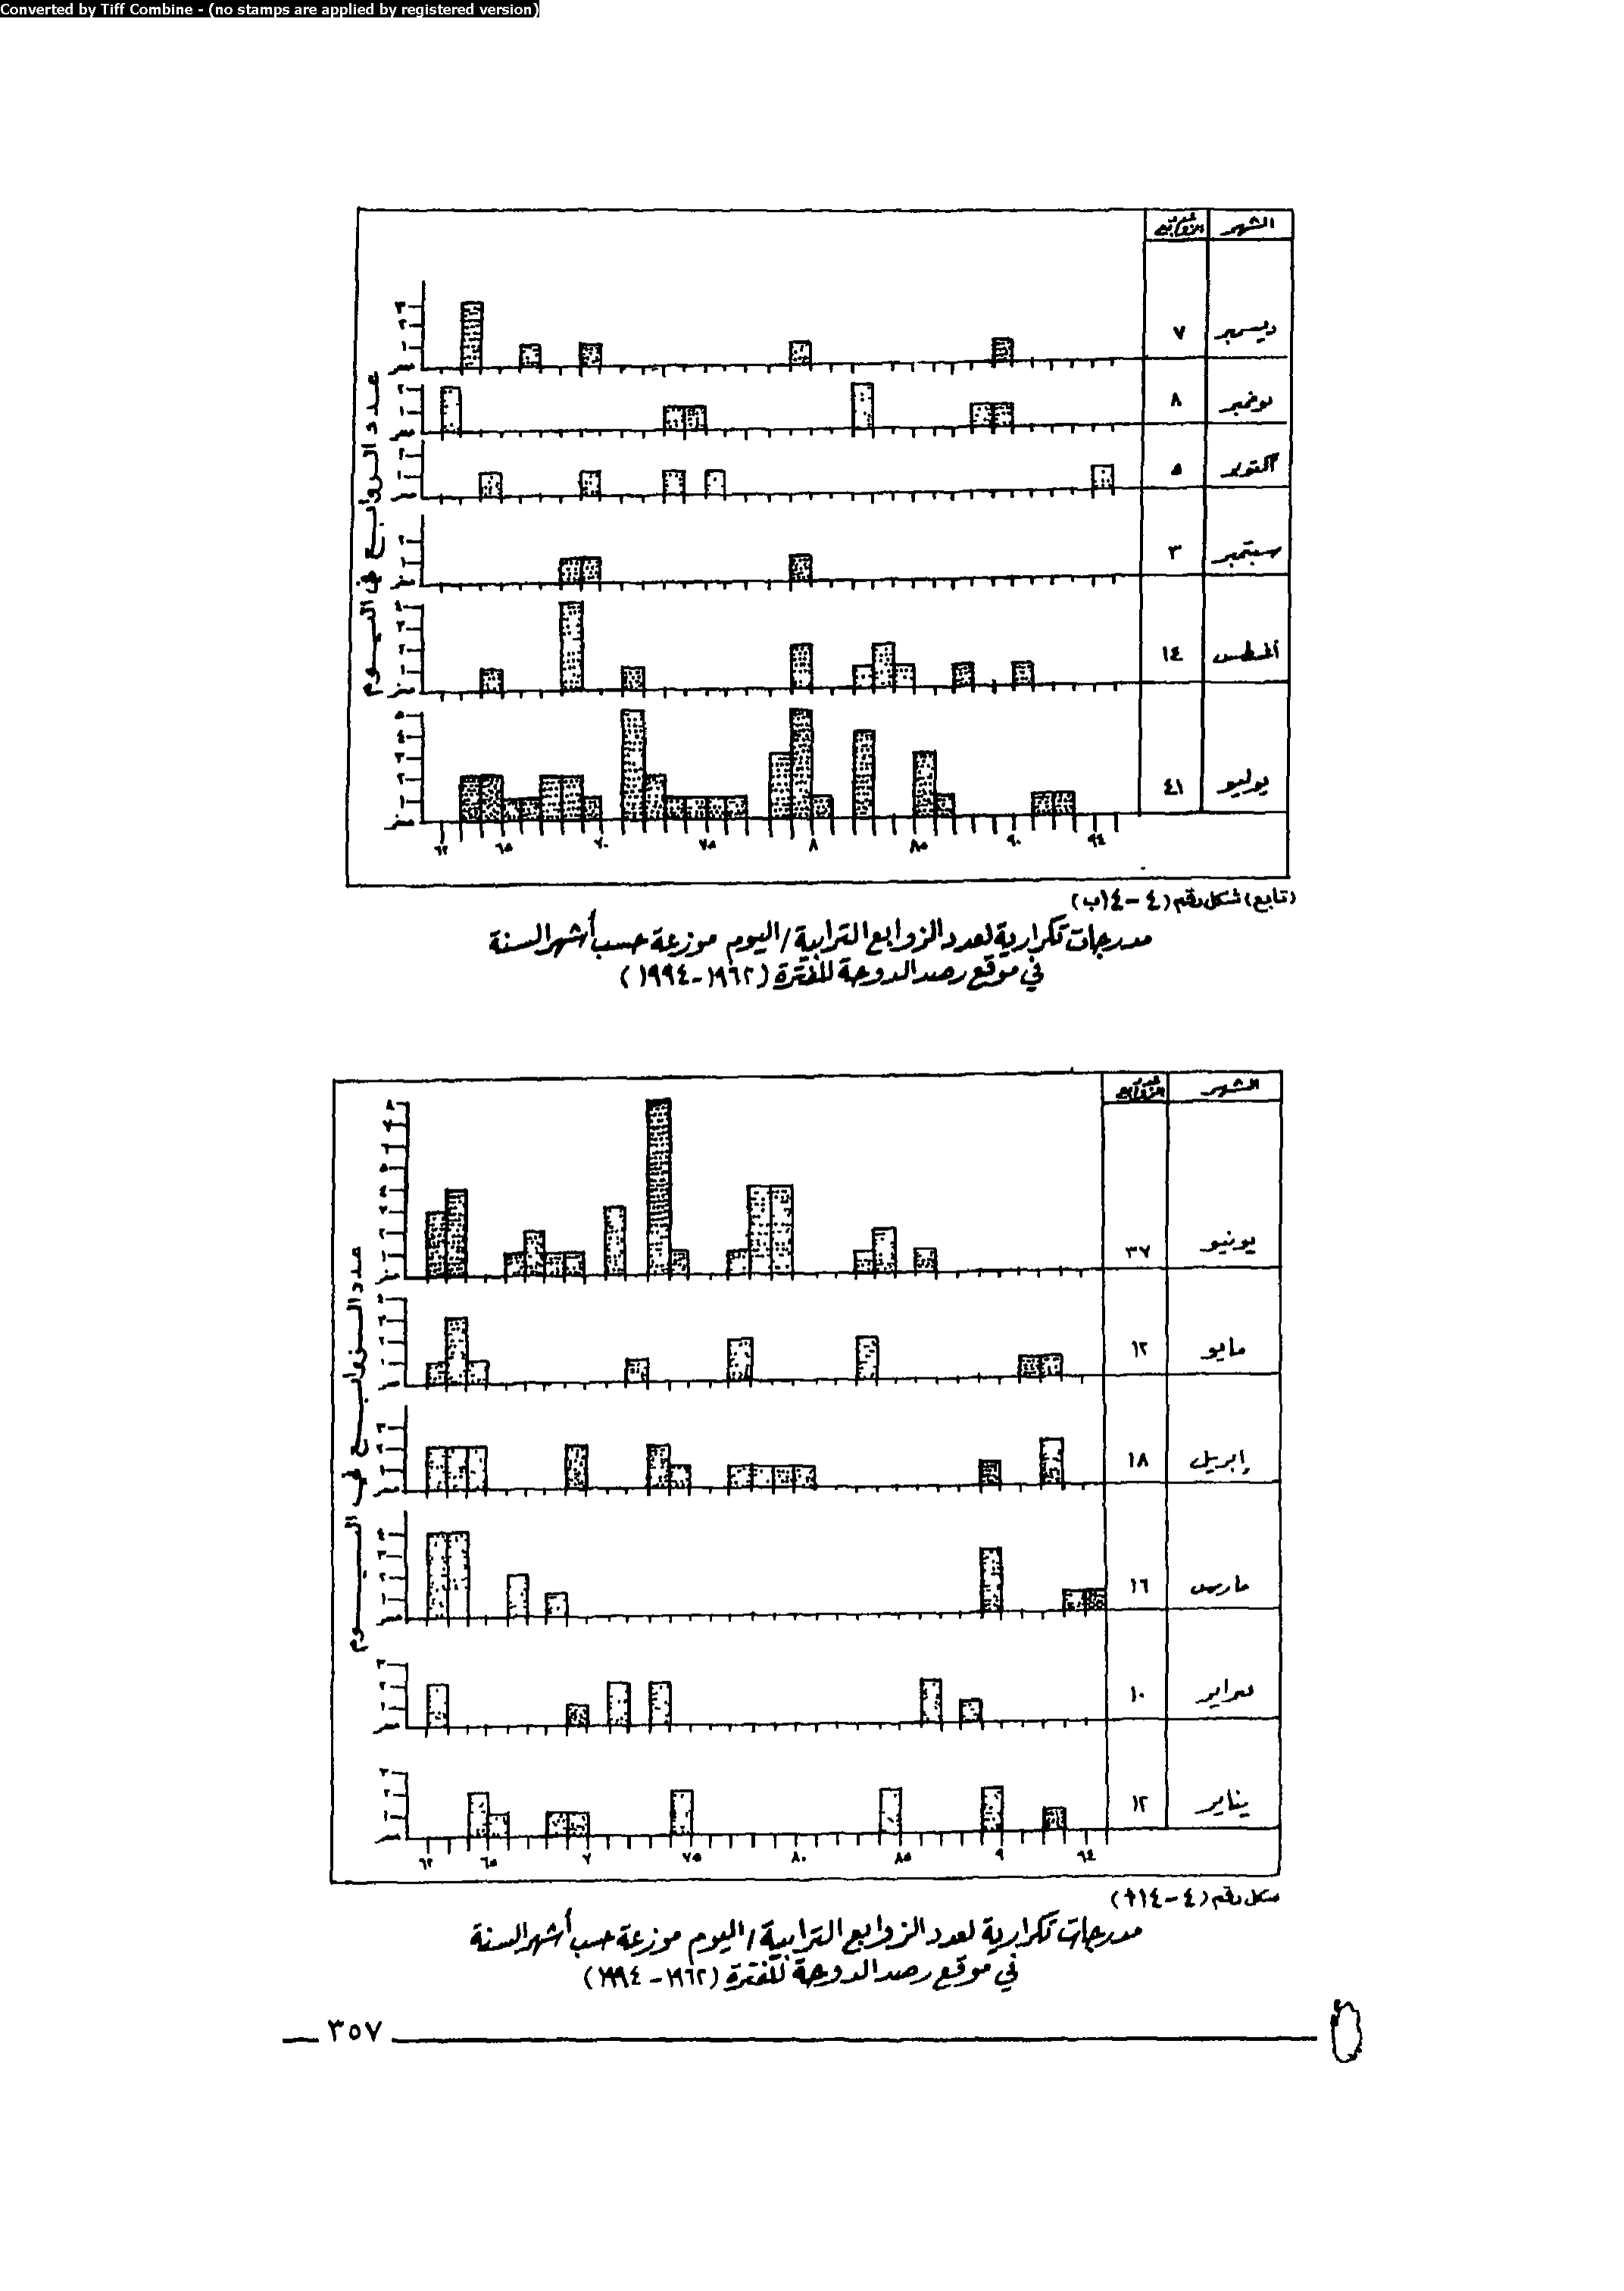 Converted by Tiff Combine - (no stamps are applied by registered version)
الشهر
عدد الزوابع
ديسمبر ٧
نوفمبر ٨
أكتوبر ٥
سبتمبر ٣
أغسطس ١٤
يوليو ٤١
عدد الزوابع في اليوم
٦٢ ٦٥ ٧٠ ٧٥ ٨ ٨٥ ٩٠ ٩٤
(تابع) شكل رقم (٤-٤ ١ب)
مدرجات تكرارية لعدد الزوابع الترابية/اليوم موزعة حسب أشهر السنة
في موقع رصد الدوحة للفترة (١٩٦٢-١٩٩٤)
الشهر
عدد الزوابع
يونيو ٣٧
مايو ١٢
إبريل ١٨
مارس ١٦
فبراير ١٠
يناير ١٢
عدد الزوابع في اليوم
٦٢ ٦٥ ٧ ٧٥ ٨٠ ٨٥ ٩ ٩٤
شكل رقم (٤-٤ ١أ)
مدرجات تكرارية لعدد الزوابع الترابية/اليوم موزعة حسب أشهر السنة
في موقع رصد الدوحة للفترة (١٩٦٢-١٩٩٤)
٣٥٧